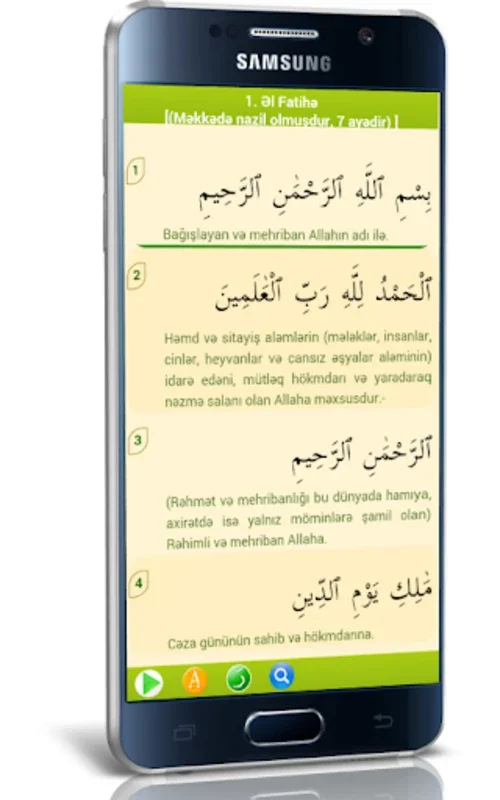 SAMSUNG
1. Əl Fatihə
[(Məkkədə nazil olmuşdur, 7 ayədir) ]
1
بِسْمِ ٱللَّهِ ٱلرَّحْمَٰنِ ٱلرَّحِيمِ
Bağışlayan və mehriban Allahın adı ilə.
2
ٱلْحَمْدُ لِلَّهِ رَبِّ ٱلْعَٰلَمِينَ
Həmd və sitayiş aləmlərin (mələklər, insanlar,
cinlər, heyvanlar və cansız əşyalar aləminin)
idarə edəni, mütləq hökmdarı və yaradaraq
nəzmə salanı olan Allaha məxsusdur.-
3
ٱلرَّحْمَٰنِ ٱلرَّحِيمِ
(Rəhmət və mehribanlığı bu dünyada hamıya,
axirətdə isə yalnız möminlərə şamil olan)
Rəhimli və mehriban Allaha.
4
مَٰلِكِ يَوْمِ ٱلدِّينِ
Cəza gününün sahib və hökmdarına.
A